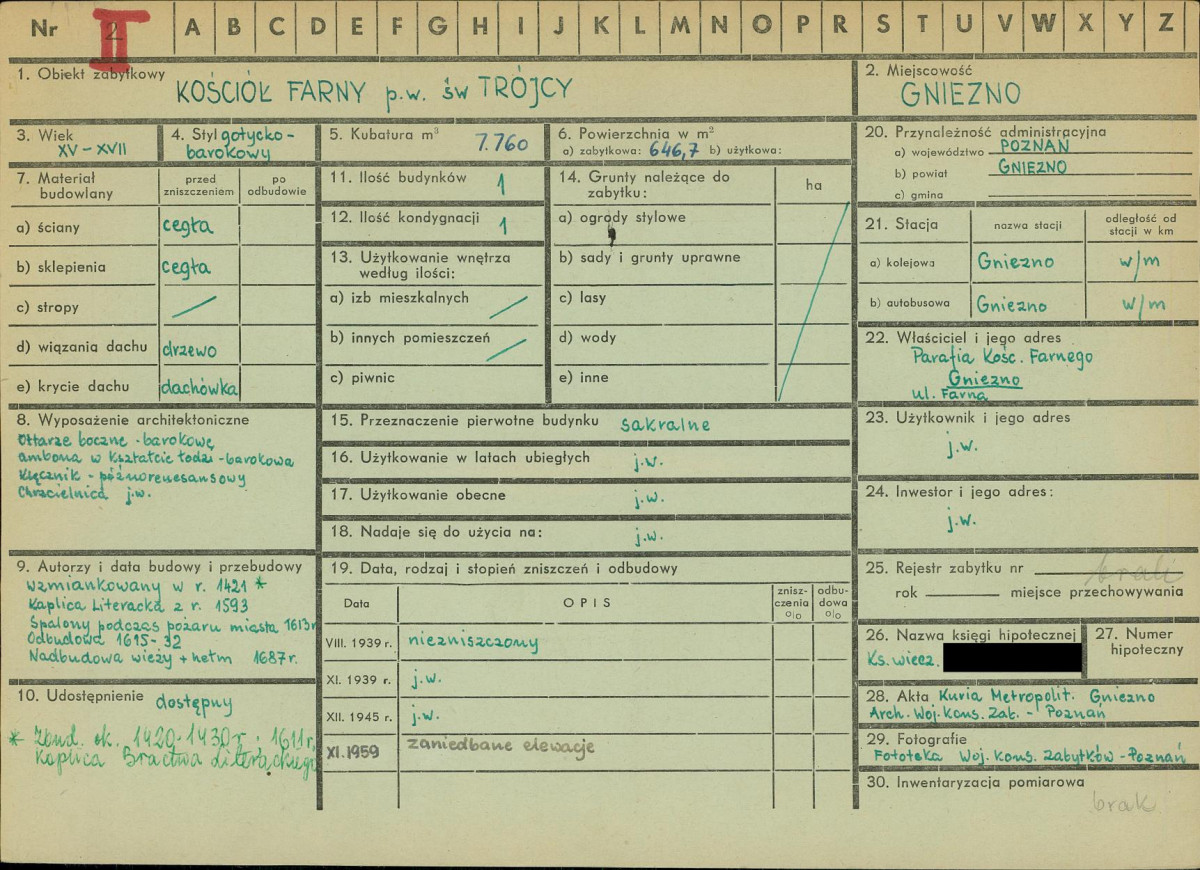 Nr 2 II A B C D E F G H I J K L M N O P R S T U V W X Y Z
1. Obiekt zabytkowy
KOŚCIÓŁ FARNY p.w. św TRÓJCY
2. Miejscowość
GNIEZNO
3. Wiek
XV - XVII
4. Styl gotycko-
barokowy
5. Kubatura m³
7.760
6. Powierzchnia w m²
a) zabytkowa: 646,7 b) użytkowa:
7. Materiał
budowlany
przed
zniszczeniem
po
odbudowie
a) ściany cegła
b) sklepienia cegła
c) stropy /
d) wiązania dachu drzewo
e) krycie dachu dachówka
8. Wyposażenie architektoniczne
Ołtarze boczne - barokowe
ambona w kształcie łodzi - barokowa
Klęcznik - późnorenesansowy
Chrzcielnica j.w.
9. Autorzy i data budowy i przebudowy
wzmiankowany w r. 1421 *
Kaplica Literacka z r. 1593
Spalony podczas pożaru miasta 1613r
Odbudowa 1615-32
Nadbudowa wieży + hełm 1687r.
10. Udostępnienie dostępny
* Zbud. ok. 1420-1430r. 1611r.
Kaplica Bractwa Literackiego
11. Ilość budynków 1
12. Ilość kondygnacji 1
13. Użytkowanie wnętrza
według ilości:
a) izb mieszkalnych /
b) innych pomieszczeń /
c) piwnic
14. Grunty należące do
zabytku:
ha
a) ogrody stylowe
b) sady i grunty uprawne
c) lasy
d) wody
e) inne
15. Przeznaczenie pierwotne budynku sakralne
16. Użytkowanie w latach ubiegłych j.w.
17. Użytkowanie obecne j.w.
18. Nadaje się do użycia na: j.w.
19. Data, rodzaj i stopień zniszczeń i odbudowy
Data
OPIS
znisz-
czenia
%
odbu-
dowa
%
VIII. 1939 r. niezniszczony
XI. 1939 r. j.w.
XII. 1945 r. j.w.
XI. 1959 zaniedbane elewacje
20. Przynależność administracyjna
a) województwo POZNAŃ
b) powiat GNIEZNO
c) gmina
21. Stacja
nazwa stacji
odległość od
stacji w km
a) kolejowa Gniezno w/m
b) autobusowa Gniezno w/m
22. Właściciel i jego adres
Parafia Kośc. Farnego
Gniezno
ul. Farna
23. Użytkownik i jego adres
j.w.
24. Inwestor i jego adres:
j.w.
25. Rejestr zabytku nr brak
rok miejsce przechowywania
26. Nazwa księgi hipotecznej
Ks. wiecz.
27. Numer
hipoteczny
28. Akta Kuria Metropolit. Gniezno
Arch. Woj. Kons. Zab. - Poznań
29. Fotografie
Fototeka Woj. Kons. Zabytków - Poznań
30. Inwentaryzacja pomiarowa
brak